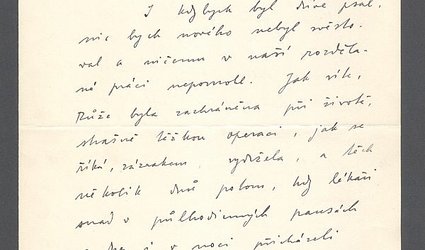 I kdybych byl dříve psal,
nic bych nového nebyl zvěsto-
val a ničemu v naší rozděle-
né práci nepomohl. Jak vík,
Růže byla zachráněna při životě,
strašně těžkou operaci, jak se
říká, zázrakem vydržela, a těch
několik dnů potom, kdy lékaři
snad v půlhodinných pausách
i v noci přicházeli